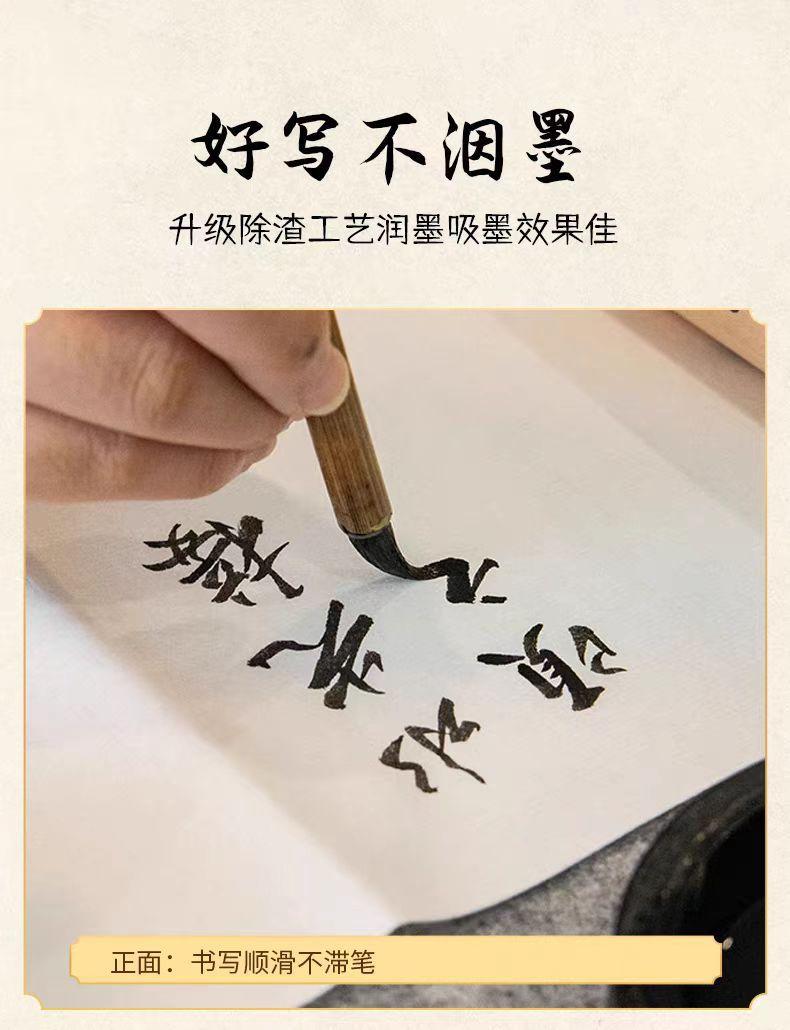 好写不洇墨
升级除渣工艺润墨吸墨效果佳
正面：书写顺滑不滞笔